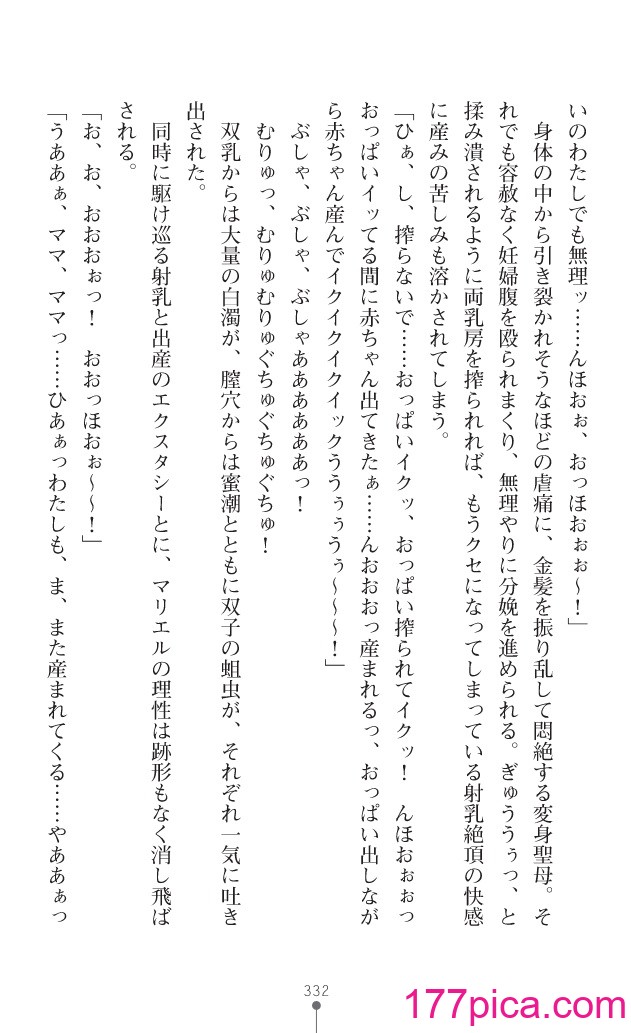 いのわたしでも無理ッ……んほおぉ、おっほおぉぉ～！」
　身体の中から引き裂かれそうなほどの虐痛に、金髪を振り乱して悶絶する変身聖母。そ
れでも容赦なく妊婦腹を殴られまくり、無理やりに分娩を進められる。ぎゅううぅっ、と
揉み潰されるように両乳房を搾られれば、もうクセになってしまっている射乳絶頂の快感
に産みの苦しみも溶かされてしまう。
「ひぁ、し、搾らないで……おっぱいイクッ、おっぱい搾られてイクッ！　んほおぉぉっ
おっぱいイッてる間に赤ちゃん出てきたぁ……んおおおっ産まれるっ、おっぱい出しなが
ら赤ちゃん産んでイクイクイクイックううぅぅうぅ～～～！」
　ぶしゃ、ぶしゃ、ぶしゃああああああっ！
　むりゅっ、むりゅむりゅぐちゅぐちゅぐちゅ！
　双乳からは大量の白濁が、膣穴からは蜜潮とともに双子の蛆虫が、それぞれ一気に吐き
出された。
　同時に駆け巡る射乳と出産のエクスタシーとに、マリエルの理性は跡形もなく消し飛ば
される。
「お、お、おおおぉっ！　おおっほおぉ～～！」
「うああぁ、ママ、ママっ……ひあぁっわたしも、ま、また産まれてくる……やああぁっ
332
177pica.com